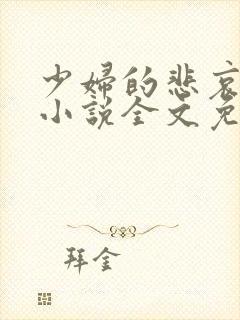 少婦的悲哀
小說全文免
拜金